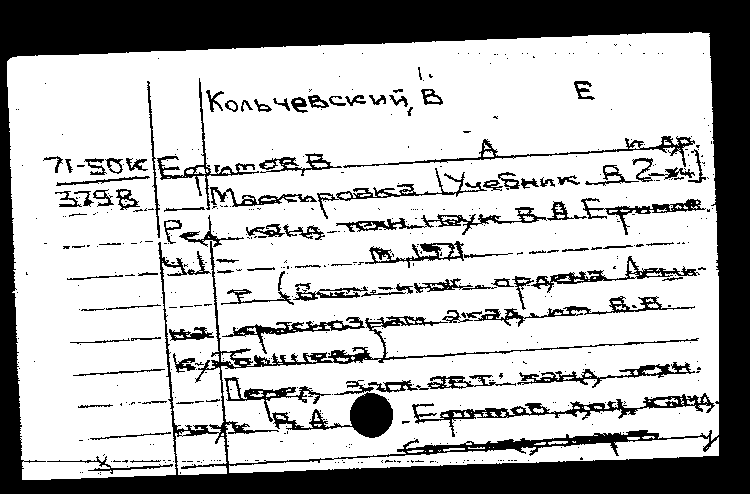 Кольчевский, В Е
71-50К Ефимов, В А и др.
379В Маскировка. [Учебник. В 2-х ч.]
Ред. канд. техн. наук В. А. Ефимов.
Ч. 1 - М., 1971
т (Воен.-инж. ордена Лени-
на краснознам. акад. им. В. В.
Куйбышева)
Перед загл. авт.: канд. техн.
наук В. А. Ефимов, доц., канд.
х у